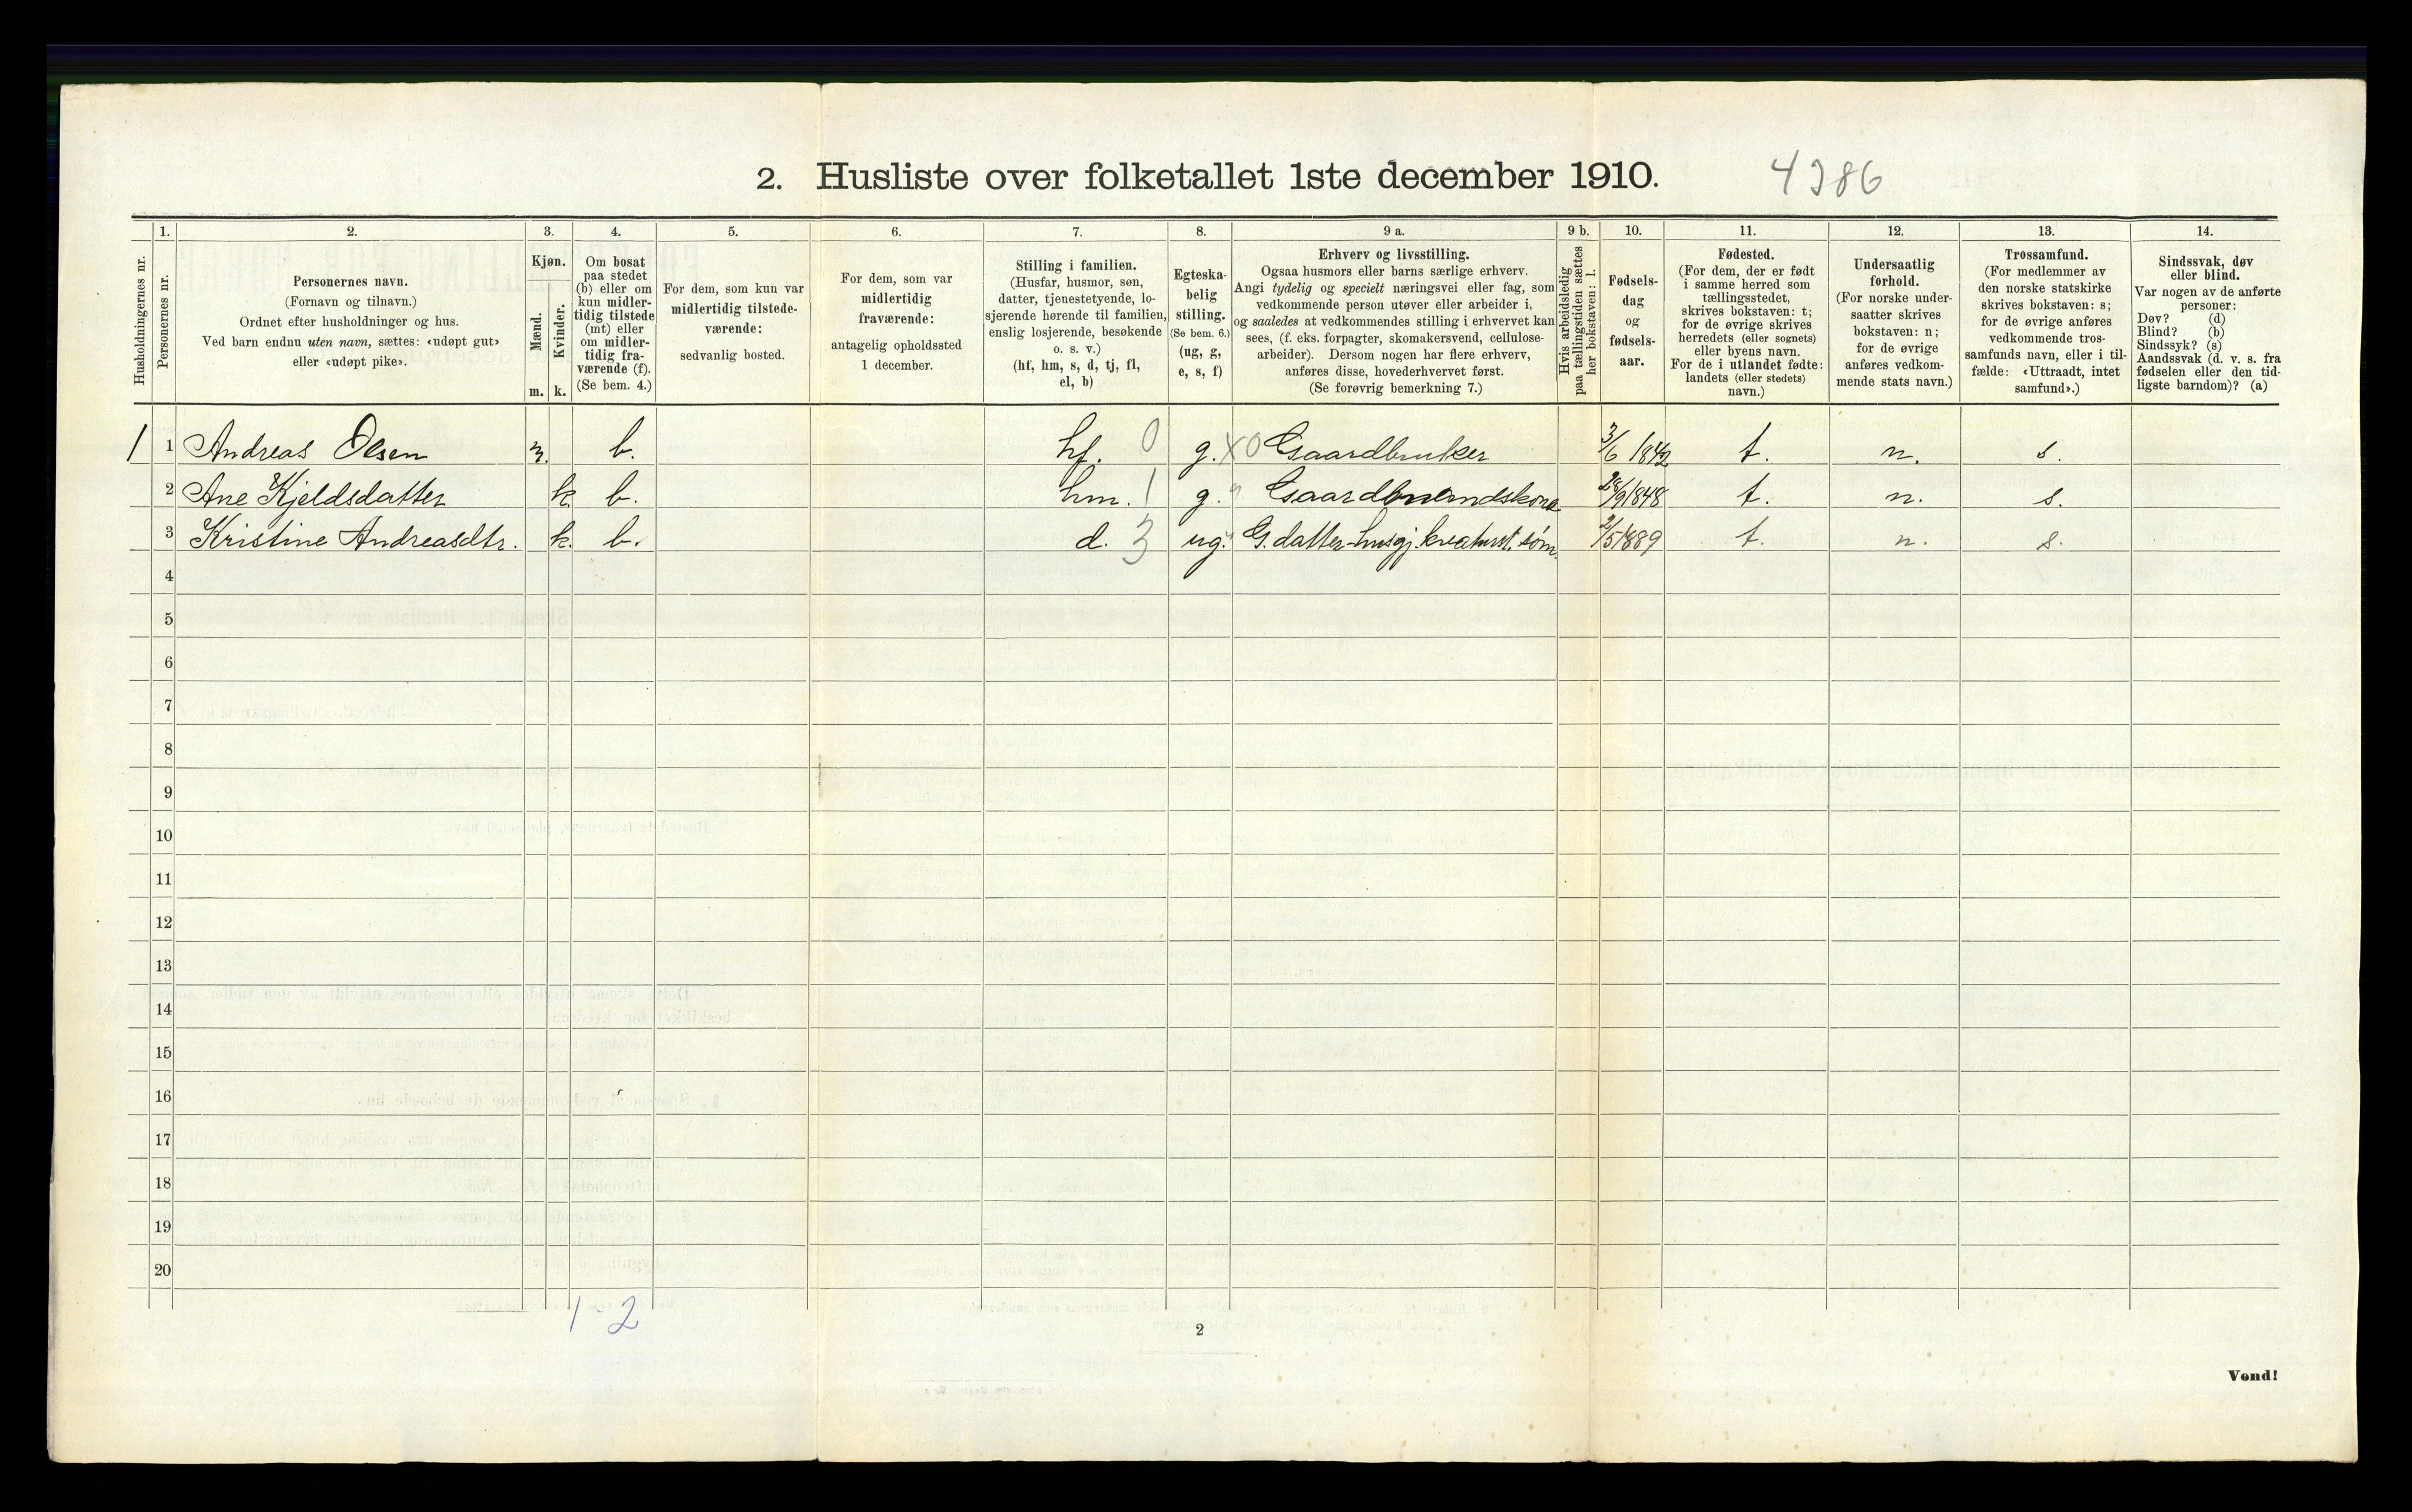 2. Husliste over folketallet 1ste december 1910. 4386
1. 2. 3. 4. 5. 6. 7. 8. 9 a. 9 b. 10. 11. 12. 13. 14.
Husholdningernes nr.
Personernes nr.
Personernes navn.
(Fornavn og tilnavn.)
Ordnet efter husholdninger og hus.
Ved barn endnu uten navn, sættes: «udøpt gut»
eller «udøpt pike».
Kjøn.
Mænd.
Kvinder.
m. k.
Om bosat
paa stedet
(b) eller om
kun midler-
tidig tilstede
(mt) eller
om midler-
tidig fra-
værende (f).
(Se bem. 4.)
For dem, som kun var
midlertidig tilstede-
værende:
sedvanlig bosted.
For dem, som var
midlertidig
fraværende:
antagelig opholdssted
1 december.
Stilling i familien.
(Husfar, husmor, søn,
datter, tjenestetyende, lo-
sjerende hørende til familien,
enslig losjerende, besøkende
o. s. v.)
(hf, hm, s, d, tj, fl,
el, b)
Egteska-
belig
stilling.
(Se bem. 6.)
(ug, g,
e, s, f)
Erhverv og livsstilling.
Ogsaa husmors eller barns særlige erhverv.
Angi tydelig og specielt næringsvei eller fag, som
vedkommende person utøver eller arbeider i,
og saaledes at vedkommendes stilling i erhvervet kan
sees, (f. eks. forpagter, skomakersvend, cellulose-
arbeider). Dersom nogen har flere erhverv,
anføres disse, hovederhvervet først.
(Se forøvrig bemerkning 7.)
Hvis arbeidsledig
paa tællingstiden sættes
her bokstaven: l.
Fødsels-
dag
og
fødsels-
aar.
Fødested.
(For dem, der er født
i samme herred som
tællingsstedet,
skrives bokstaven: t;
for de øvrige skrives
herredets (eller sognets)
eller byens navn.
For de i utlandet fødte:
landets (eller stedets)
navn.)
Undersaatlig
forhold.
(For norske under-
saatter skrives
bokstaven: n;
for de øvrige
anføres vedkom-
mende stats navn.)
Trossamfund.
(For medlemmer av
den norske statskirke
skrives bokstaven: s;
for de øvrige anføres
vedkommende tros-
samfunds navn, eller i til-
fælde: «Uttraadt, intet
samfund».)
Sindssvak, døv
eller blind.
Var nogen av de anførte
personer:
Døv? (d)
Blind? (b)
Sindssyk? (s)
Aandssvak (d. v. s. fra
fødselen eller den tid-
ligste barndom)? (a)
1 1 Andreas Olsen m. b. hf. 0 g. X0 Gaardbruker 3/6 1842 t. n. s.
2 Ane Kjeldsdatter k b. hm. 1 g. Gaardbrukerskone 28/9 1848 t. n. s.
3 Kristine Andreasdtr. k. b. d. 3 ug. G. datter husgj. kreaturst. søm. 2/5 1889 t. n. s.
4
5
6
7
8
9
10
11
12
13
14
15
16
17
18
19
20
1 - 2
2
Vend!